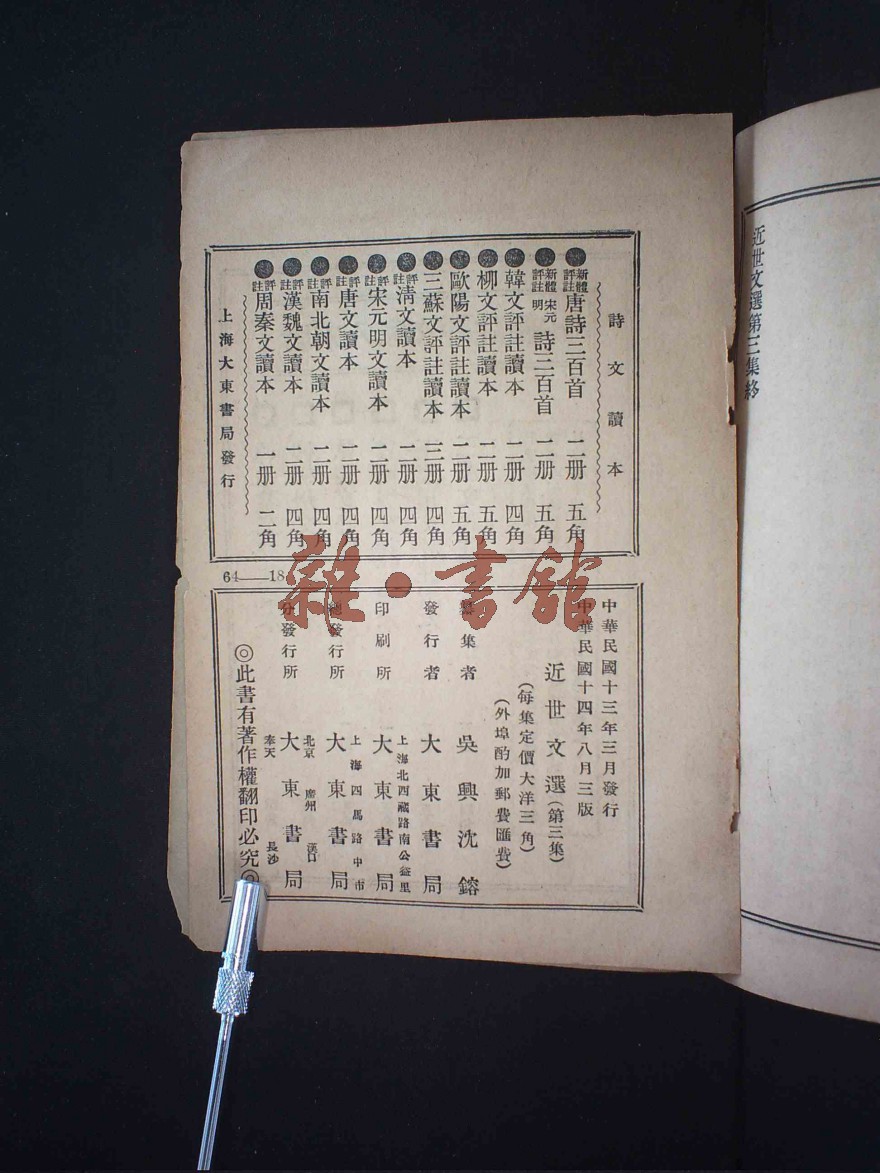 近世文選第三集終
詩文讀本
新體評註唐詩三百首 二册 五角
新體評註宋元明詩三百首 二册 五角
韓文評註讀本 二册 四角
柳文評註讀本 二册 五角
歐陽文評註讀本 二册 五角
三蘇文評註讀本 三册 四角
評註淸文讀本 二册 四角
評註宋元明文讀本 二册 四角
評註唐文讀本 二册 四角
評註南北朝文讀本 二册 四角
評註漢魏文讀本 二册 四角
評註周秦文讀本 一册 二角
上海大東書局發行
64—18
雜·書館
中華民國十三年三月發行
中華民國十四年八月三版
近世文選(第三集)
(每集定價大洋三角)
(外埠酌加郵費匯費)
纂集者 吳興沈鎔
發行者 大東書局
上海北西藏路南公益里
印刷所 大東書局
上海四馬路中市
總發行所 大東書局
北京 廣州 漢口
分發行所 大東書局
奉天 長沙
◎此書有著作權翻印必究◎